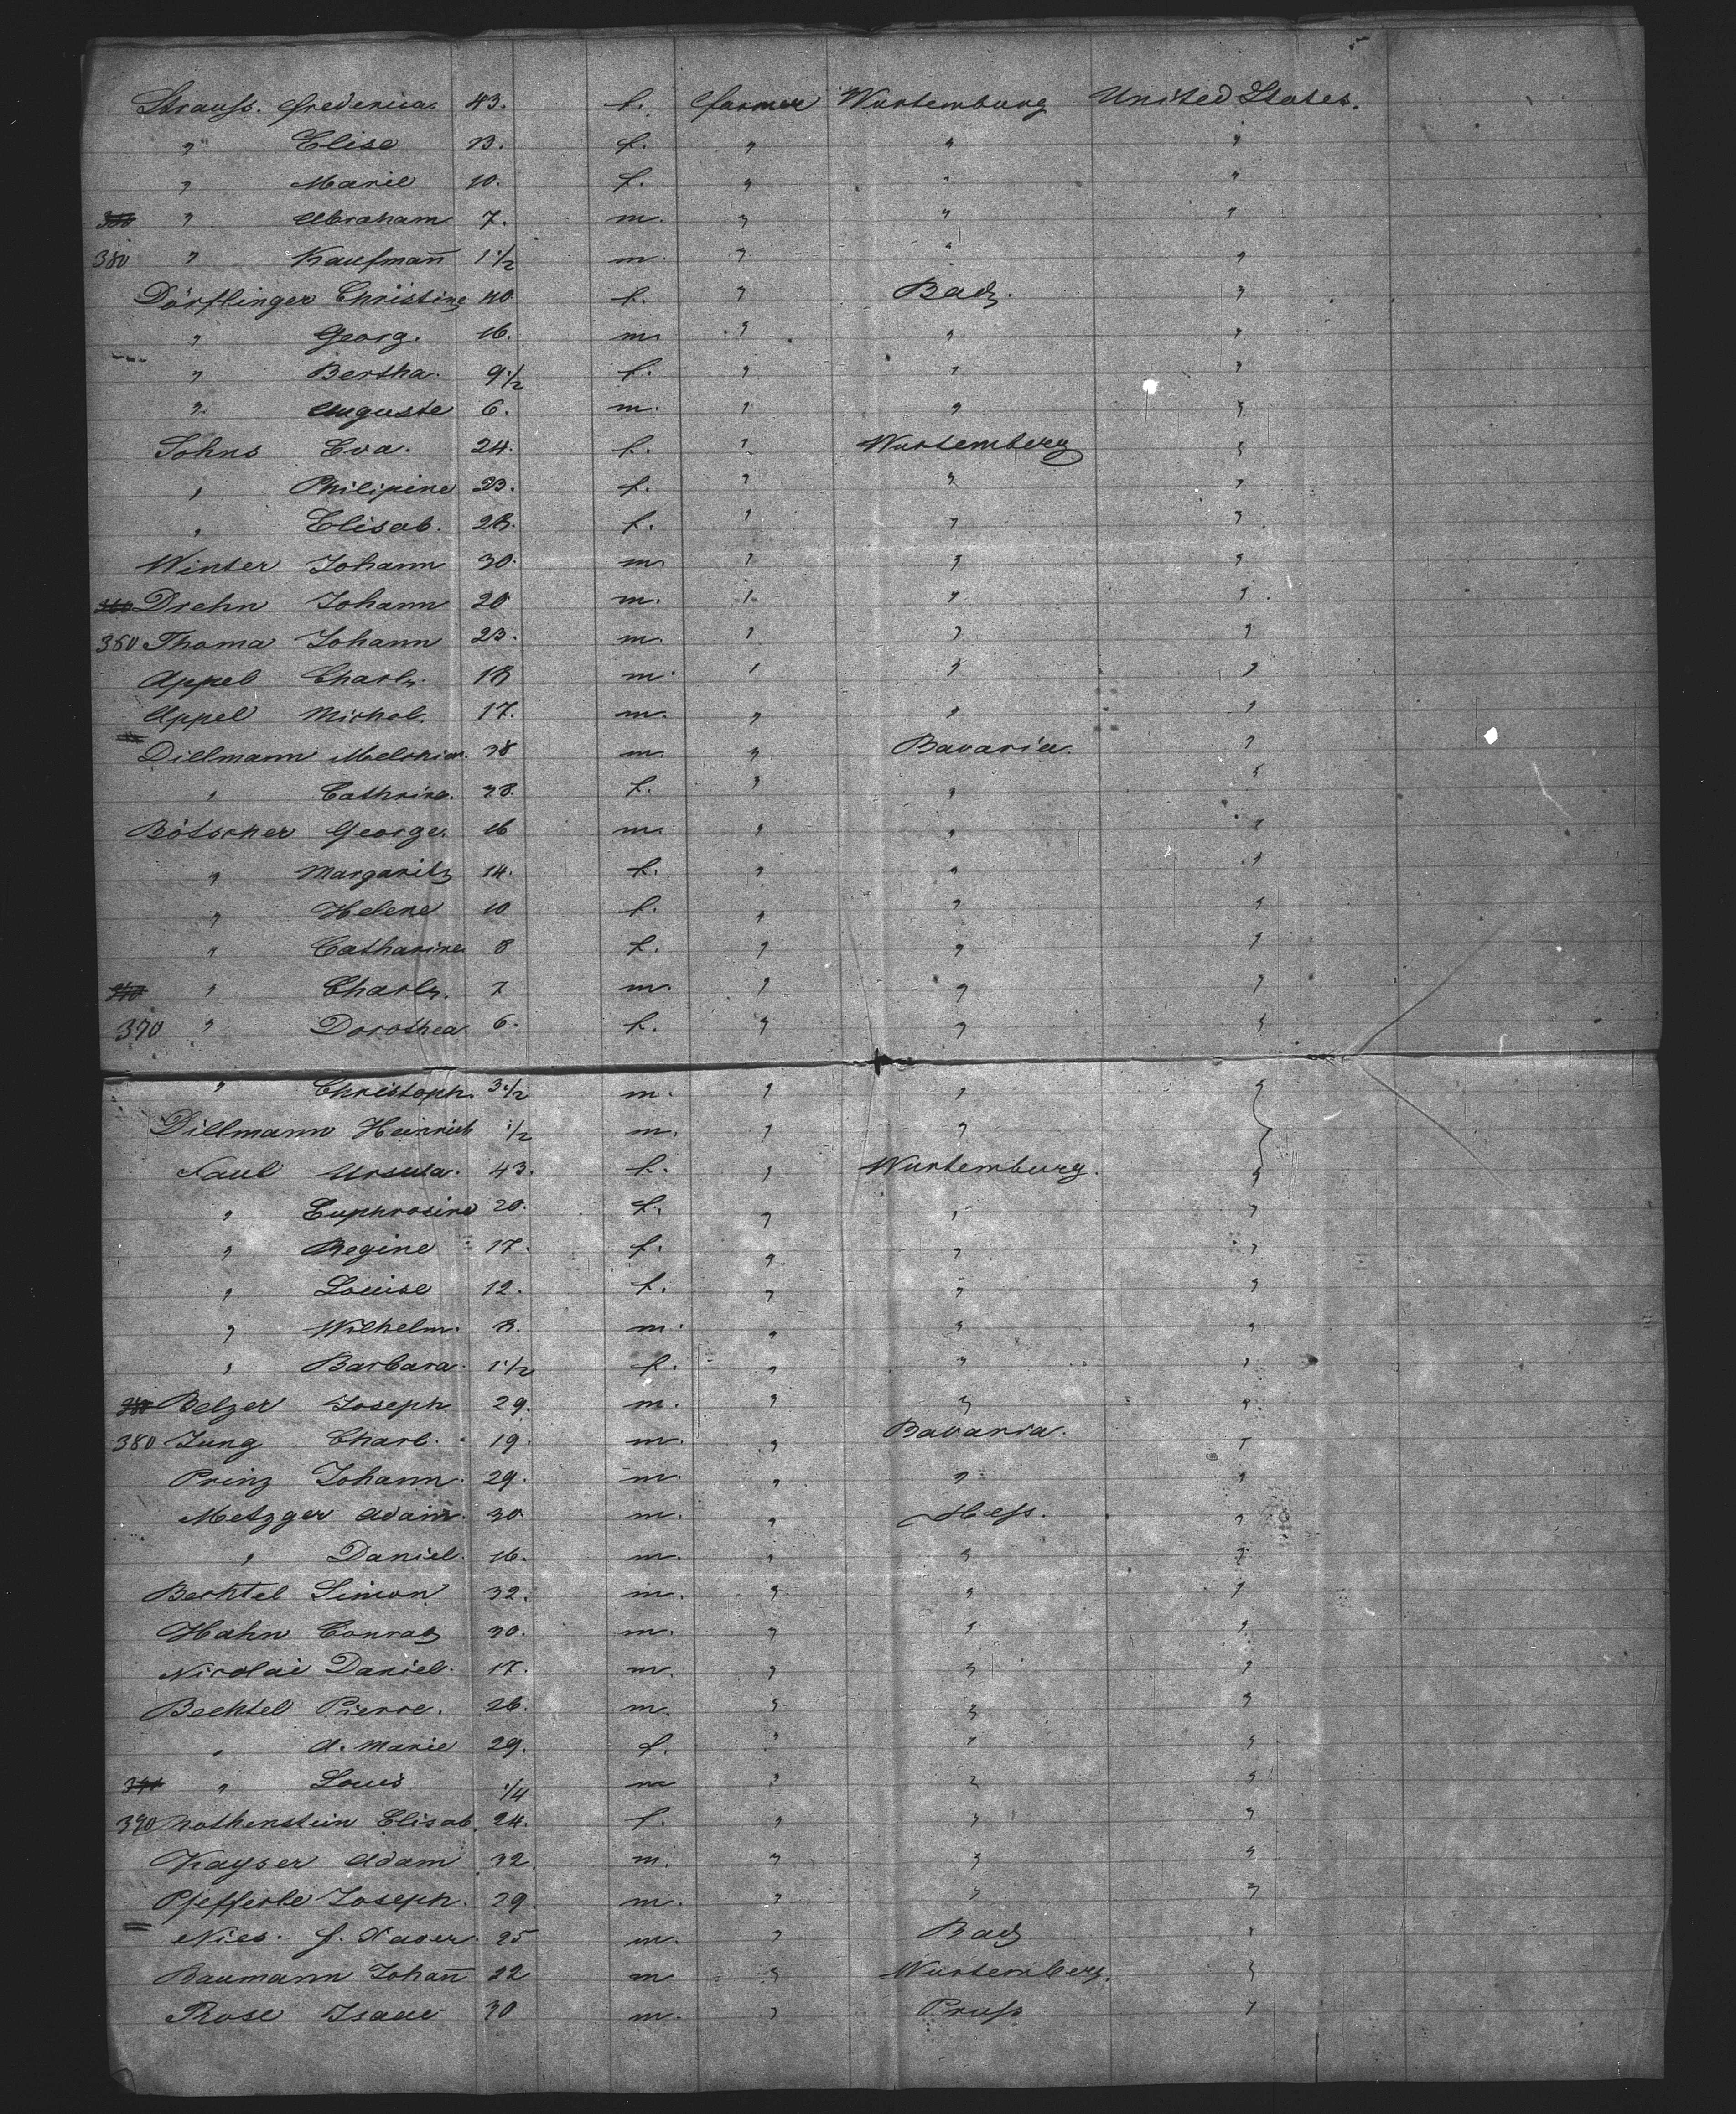 Strauss. Frederica. 43. f. farmer Wurtemburg United States.
" Elise 13. f. " " "
" Marie 10. f. " " "
" Abraham 7. m. " " "
380 " Kaufmañ 1 1/2 m. " " "
Dörflinger Christine 40 f. " Bad. "
" Georg. 16. m. " " "
" Bertha. 9 1/2 f. " " "
" Auguste 6. m. " " "
Johns Eva. 24. f. " Wurtemberg "
" Philipine 23. f. " " "
" Elisab. f. " " "
Winter Johann 30. m. " " "
Drehn Johann 20 m. " " "
360 Thoma Johann 23. m. " " "
Appel Charls. 18 m. " " "
Appel Michal. 17. m. " " "
Dillmann Melchior. 38 m. " Bavaria. "
" Cathrine. 38. f. " " "
Bötscher George. 16 m. " " "
" Margarita 14. f. " " "
" Helene 10 f. " " "
" Catharine 8 f. " " "
" Charls. 7 m. " " "
370 " Dorothea 6. f. " " "
" Christoph. 3 1/2 m. " " "
Dillmann Heinrich 1/2 m. " " "
Faul Ursula. 43. f. " Wurtemburg. "
" Euphrosine 20. f. " " "
" Regine 17. f. " " "
" Louise 12. f. " " "
" Wilhelm. 8. m. " " "
" Barbara. 1 1/2 f. " " "
Belzer Joseph 29. m. " " "
380 Jung Charl. 19. m. " Bavaria. "
Prinz Johann. 29. m. " " "
Metzger Adam. 30 m. " Hess. "
" Daniel. 16. m. " " "
Bechtel Simon 32. m. " " "
Hahn Conrad 30. m. " " "
Nicolai Daniel. 17. m. " " "
Bechtel Pierre. 26. m. " " "
" A. Marie 29. f. " " "
" Louis 1/4 m " " "
390 Nothenstein Elisab. 24. f. " " "
Kayser Adam 32. m. " " "
Pfefferle Joseph. 29. m. " " "
Nies. f. Xaver. 25 m. " Bad "
Baumann Johañ 22 m " Wurtemberg. "
Rose Isaac 30 m. " Pruss "